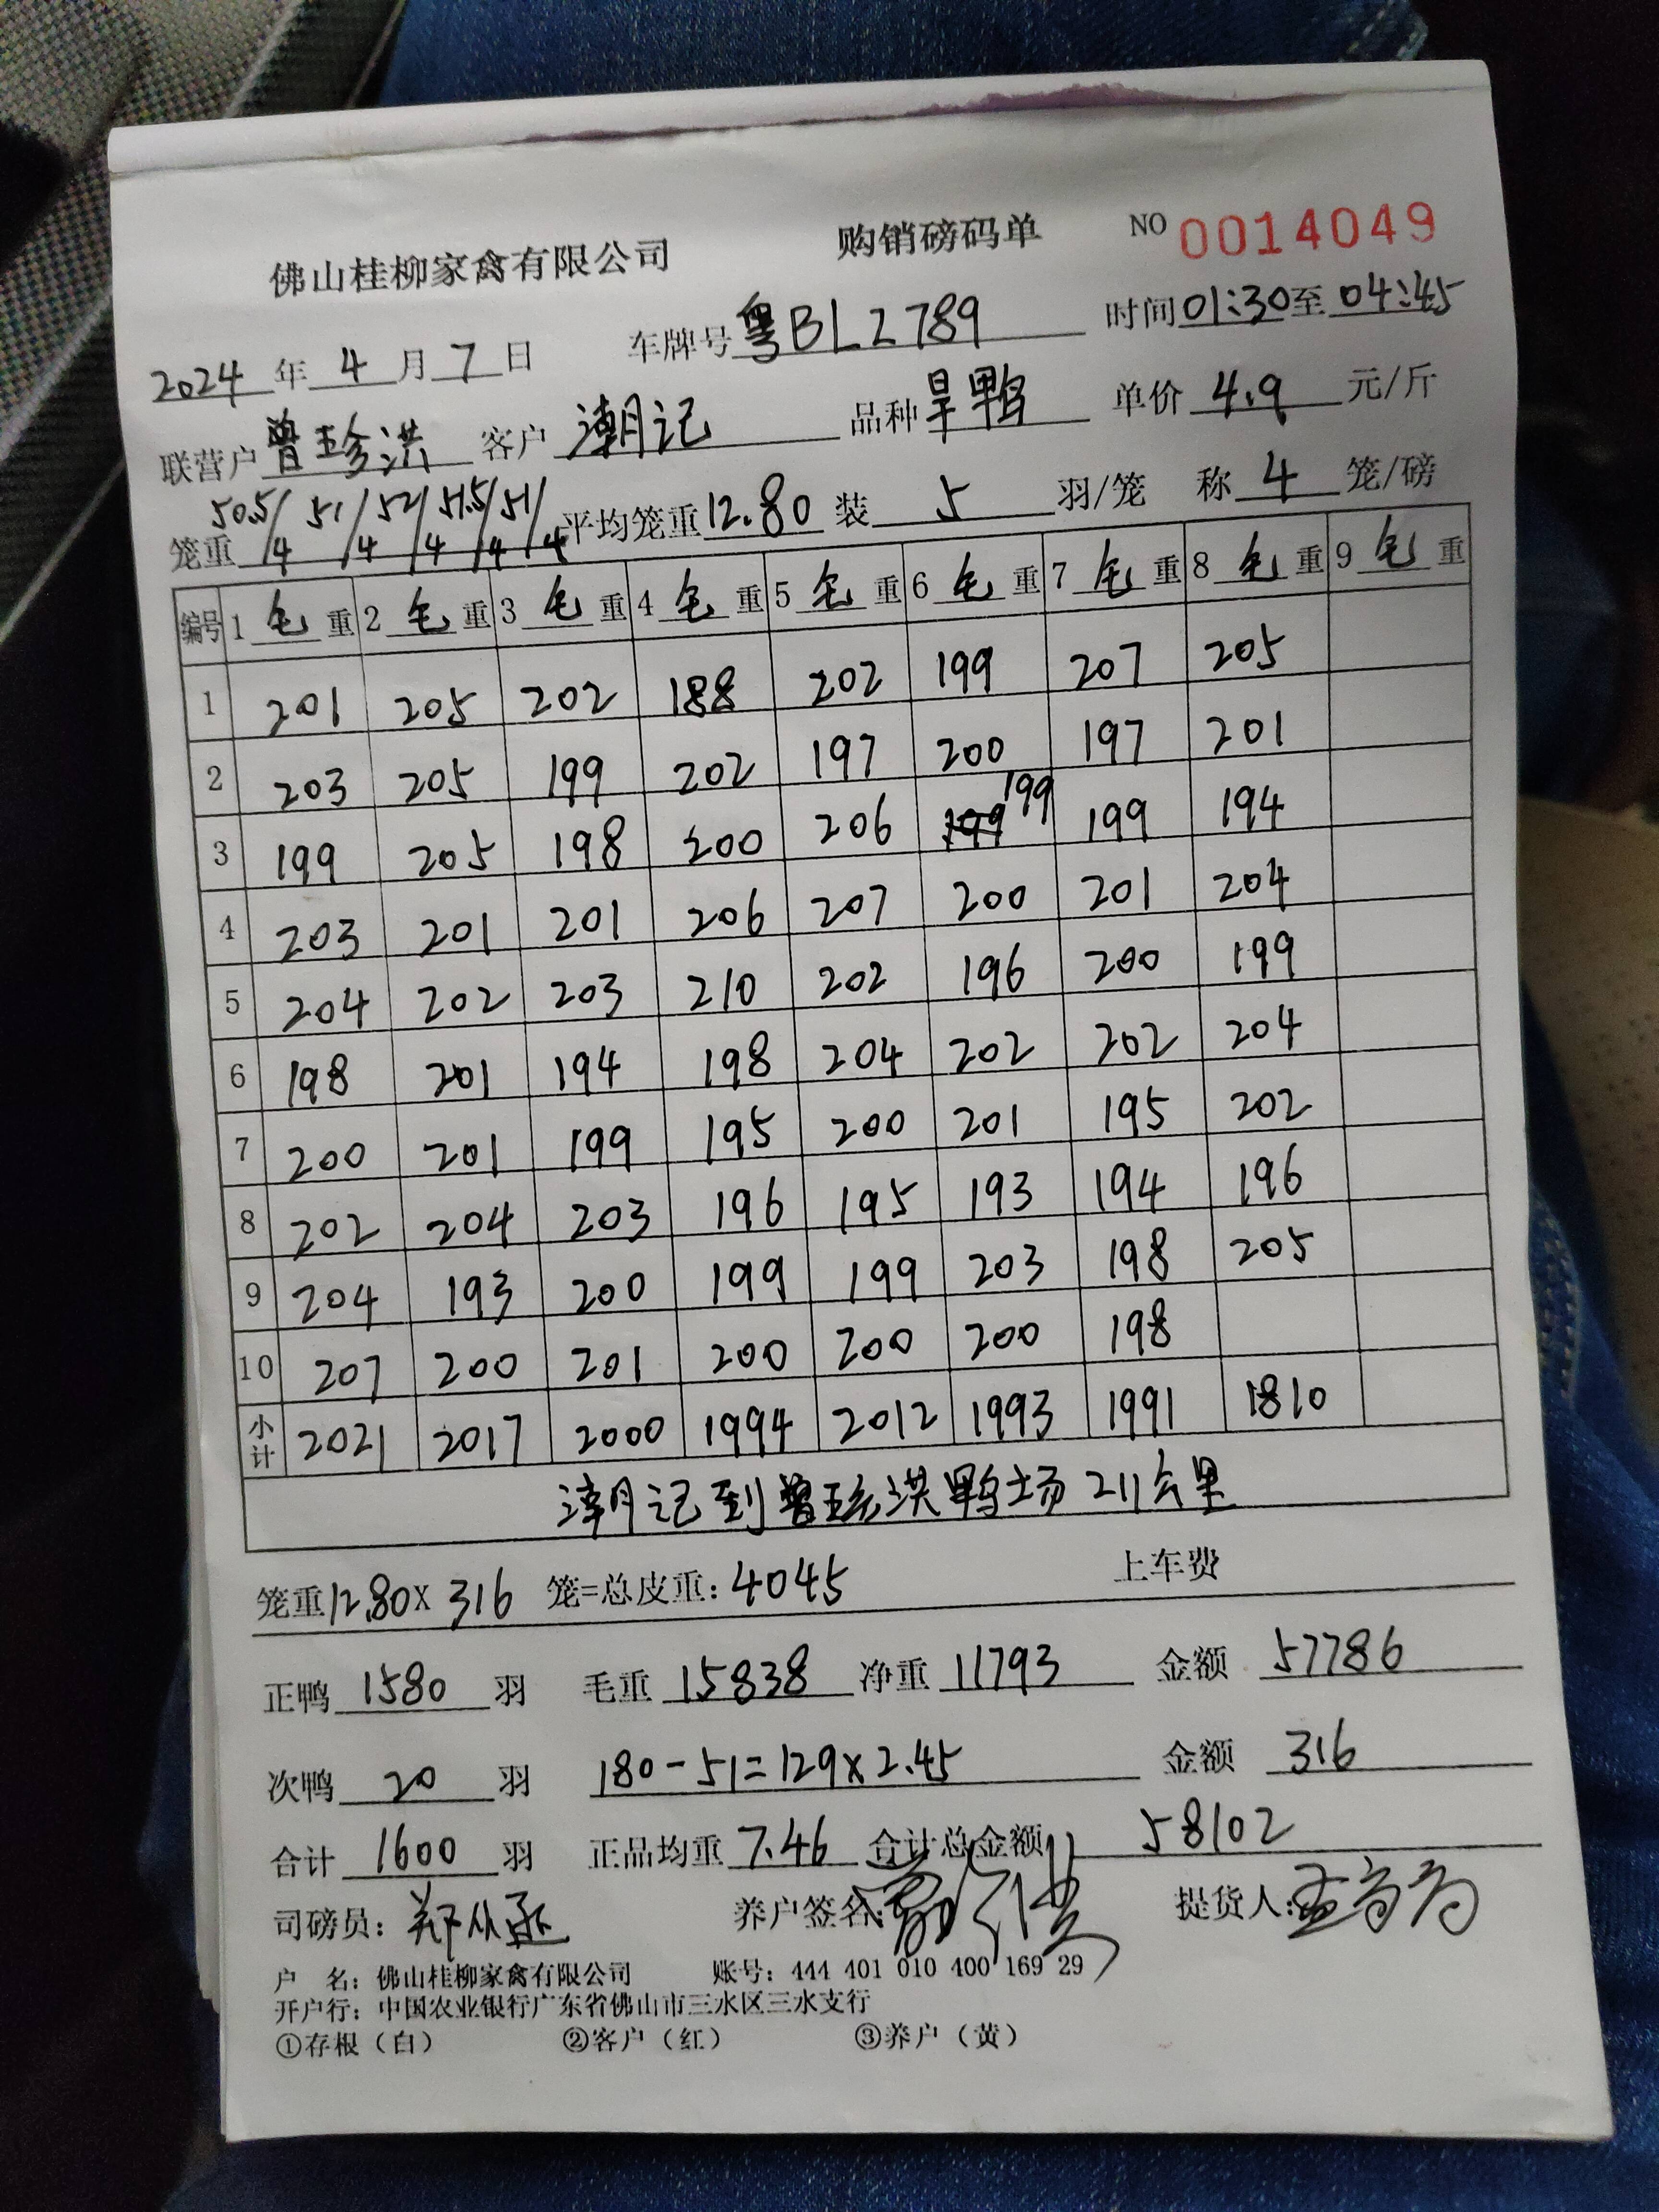 佛山桂柳家禽有限公司 购销磅码单 NO 0014049
2024年4月7日 车牌号 粤BLZ789 时间 01:30至04:45
联营户 曾珍洪 客户 潮记 品种 旱鸭 单价 4.9 元/斤
笼重 50.5/4 51/4 52/4 51.5/4 51/4 平均笼重 12.80 装 5 羽/笼 称 4 笼/磅
编号 1 毛重 2 毛重 3 毛重 4 毛重 5 毛重 6 毛重 7 毛重 8 毛重 9 毛重
1 201 205 202 188 202 199 207 205
2 203 205 199 202 197 200 197 201
3 199 205 198 200 206 199 199 194
4 203 201 201 206 207 200 201 204
5 204 202 203 210 202 196 200 199
6 198 201 194 198 204 202 202 204
7 200 201 199 195 200 201 195 202
8 202 204 203 196 195 193 194 196
9 204 193 200 199 199 203 198 205
10 207 200 201 200 200 200 198
小计 2021 2017 2000 1994 2012 1993 1991 1810
潮记到曾珍洪鸭场211公里
笼重12.80×316 笼=总皮重:4045 上车费
正鸭 1580 羽 毛重 15838 净重 11793 金额 57786
次鸭 20 羽 180-51=129×2.45 金额 316
合计 1600 羽 正品均重 7.46 合计总金额 58102
司磅员: 养户签名: 提货人:
户 名: 佛山桂柳家禽有限公司 账号: 444 401 010 400 169 29
开户行: 中国农业银行广东省佛山市三水区三水支行
①存根（白） ②客户（红） ③养户（黄）